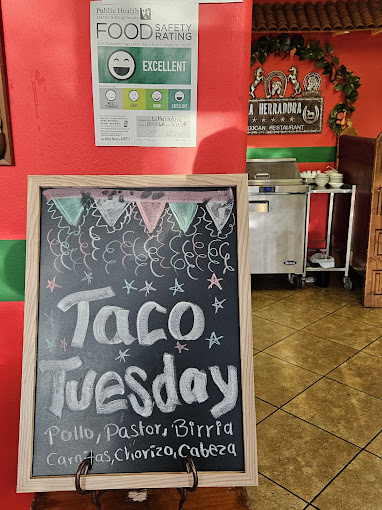 Public Health
Seattle & King County
FOOD SAFETY RATING
EXCELLENT
A HERRADURA
MEXICAN RESTAURANT
Taco
Tuesday
Pollo, Pastor, Birria
Carnitas, Chorizo, Cabeza